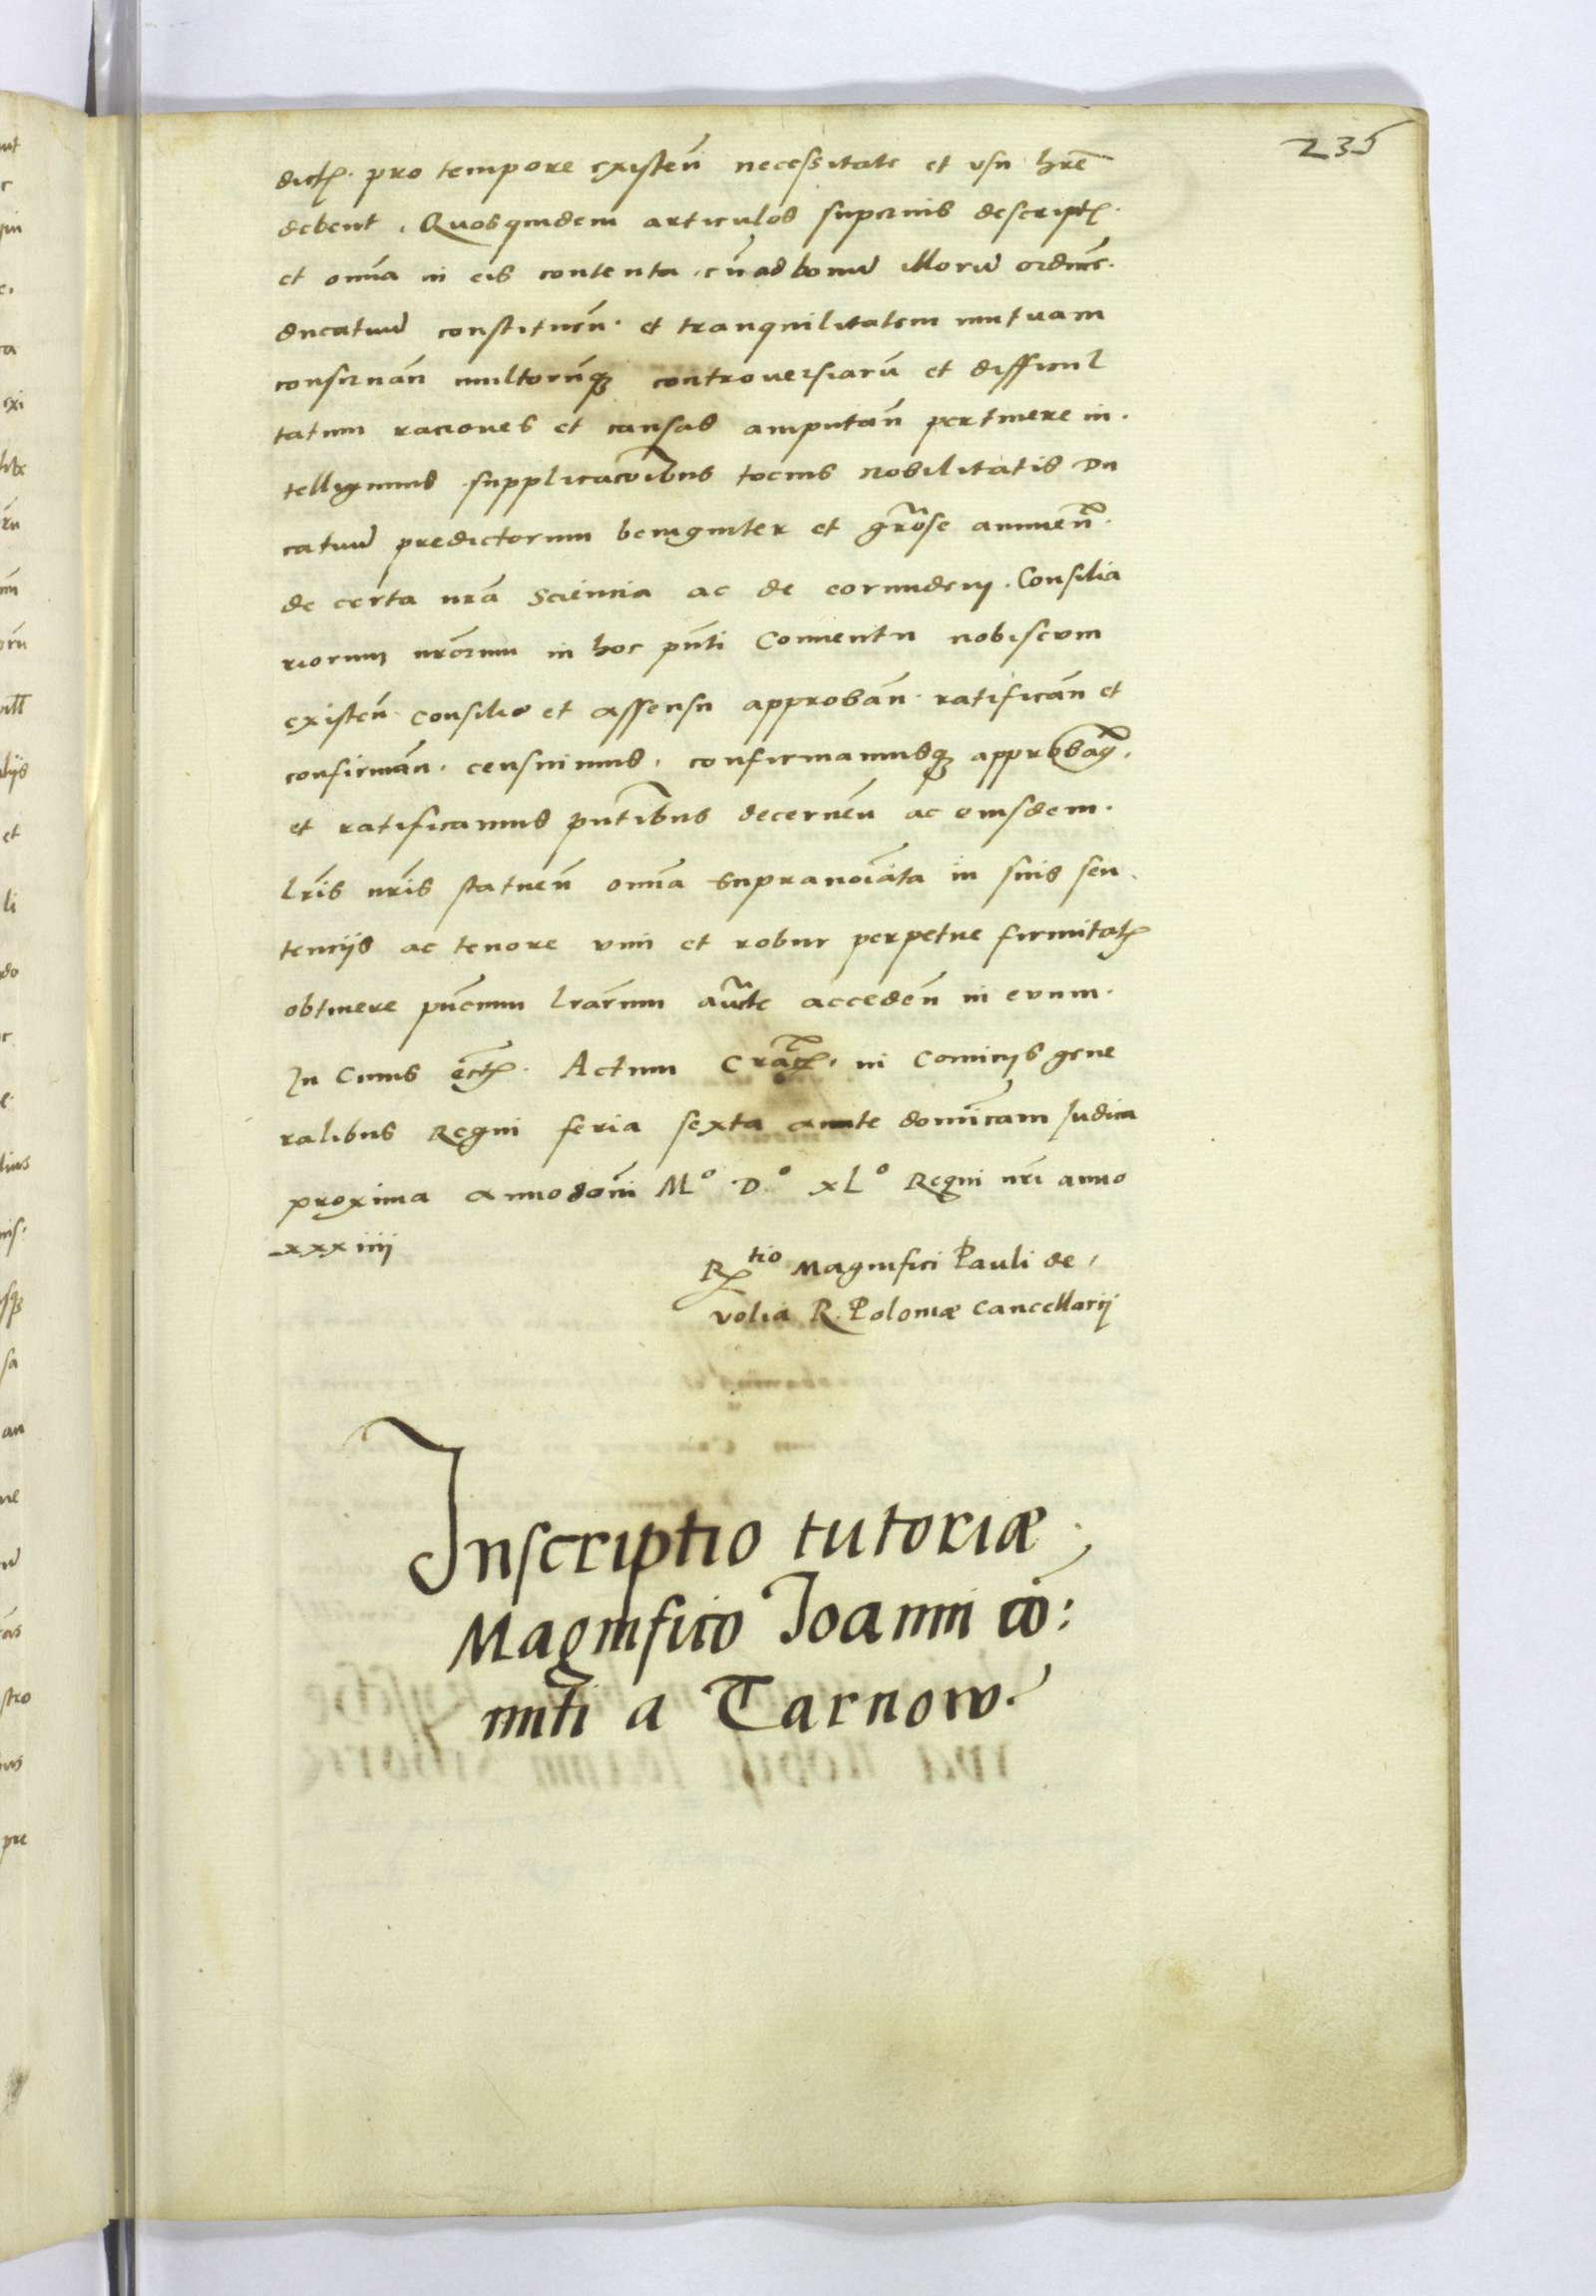 235
dictꝭ. pro tempore existeñ necessitate et vsu hr̃e
debent. Quosquidem articulos superius descriptꝭ.
et om̃ia in eis contenta, cũ ad bonũ illorũ ordinẽ.
ducatuũ constitueñ. et tranquilitatem mutuam
conseruañ multorũqꝫ controuersiarũ et difficul
tatum raciones et causas amputañ pertinere in.
telligimus. supplicacõibus tocius Nobilitatis Du
catuũ predictorum benigniter et gr̃ose annueñ.
de certa nr̃a Sciencia ac de eorundem. Consilia
riorum nr̃orum in hoc pñti Conuentu nobiscum
existeñ consilio et assensu approbañ. ratificañ et
confirmañ. censuimus. confirmamusqꝫ approbaꝫ.
et ratificamus pñtibus decerneñ ac eiusdem.
lr̃is nr̃is statueñ om̃ia supranoĩata in suis sen.
tenciis ac tenore vim et robur perpetue firmitatꝭ
obtinere pñcium lr̃arum aũcte accedeñ in euum.
In Cuius ectꝭ. Actum Cracꝭ. in Comicijs gene
ralibus Regni feria sexta ante domĩcam Judica
proxima anno dom̃i Mº Dº xLº Regni nr̃i anno
xxxiiij
Rtio Magnifici Pauli de,
volia R. Poloniæ Cancellarij
Inscriptio tutoriæ
Magnifico Ioanni cõ:
miti a Tarnow.